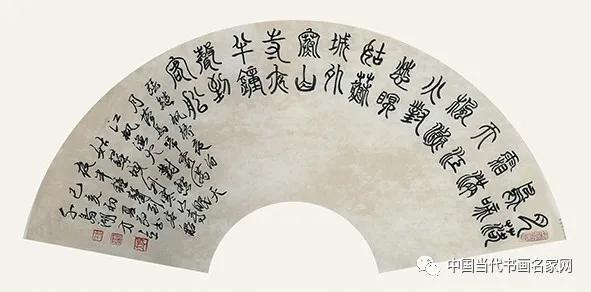 月落
烏啼
霜滿
天江
楓漁
火對
愁眠
姑蘇
城外
寒山
寺夜
半鐘
聲到
客船
張繼楓橋夜泊
月落烏啼霜滿天
江楓漁火對愁眠
姑蘇城外寒山寺
夜半鐘聲到客船
己亥初夏
中国当代书画名家网